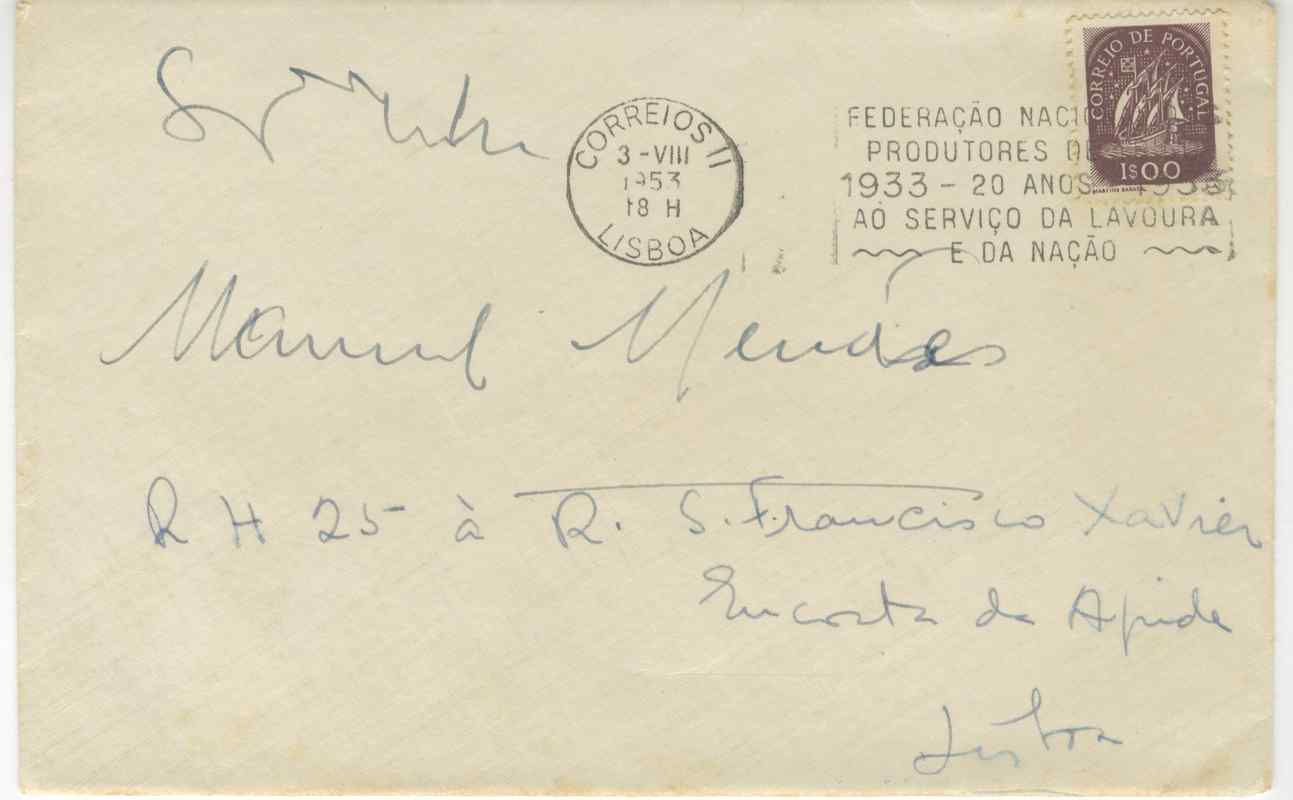 CORREIO DE PORTUGAL
1$00
CORREIOS II
3-VIII
1953
18 H
LISBOA
FEDERAÇÃO NACI
PRODUTORES D
1933 - 20 ANOS - 1953
AO SERVIÇO DA LAVOURA
E DA NAÇÃO
Manuel Mendes
R H 25 à R. S. Francisco Xavier
Encosta da Ajuda
Lisboa